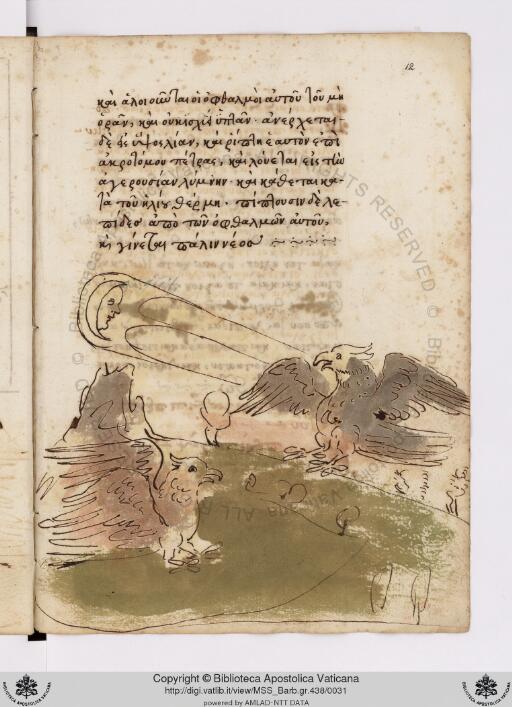 12
καὶ ἀλοιοῦνται οἱ ὀφθαλμοὶ αὐτοῦ τοῦ μὴ
ὁρᾶν, καὶ οὐκ ἰσχύει ἱπτᾶν· ἀνέρχεται
δὲ εἰς ὕψος λίαν, καὶ ρίπτει ἑαυτὸν ἐπὶ
ἀκροτόμου πέτρας, καὶ λούεται εἰς τὴν
ἀγερουσίαν λύμνην· καὶ κάθεται κα
τὰ τοῦ ἡλίου θέρμη· πίπτουσιν δὲ λε
πίδες ἀπὸ τῶν ὀφθαλμῶν αὐτοῦ,
κὶ γίνεται πάλιν νέος
Copyright © Biblioteca Apostolica Vaticana
http://digi.vatlib.it/view/MSS_Barb.gr.438/0031
powered by AMLAD-NTT DATA